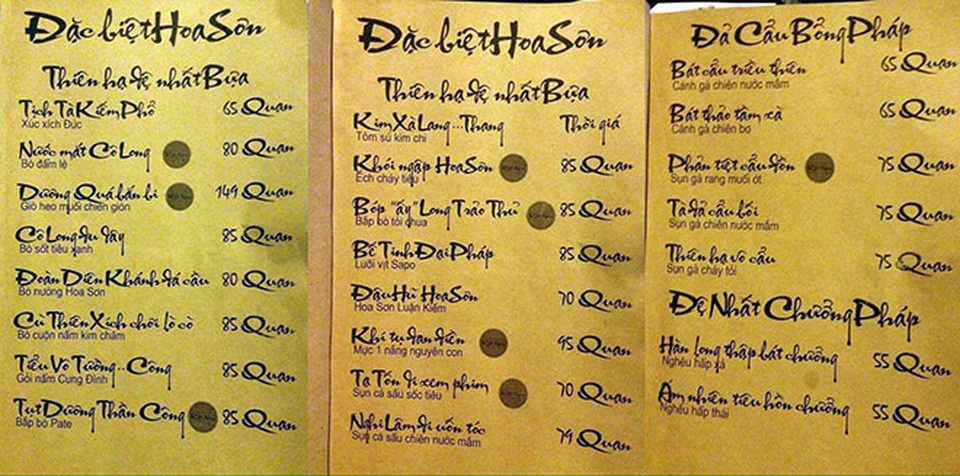 Đặc biệt Hoa Sơn
Thiên hạ đệ nhất Bựa
Tịch Tà Kiếm Phổ 65 Quan
Xúc xích Đức
Nước mắt Cô Long 80 Quan
Bò đẫm lệ
Dương Quá bắn bi 149 Quan
Giò heo muối chiên giòn
Cô Long đu dây 85 Quan
Bò sốt tiêu xanh
Đoàn Diên Khánh đá cầu 80 Quan
Bò nướng Hoa Sơn
Cu Thiên Xích chơi lò cò 85 Quan
Bò cuộn nấm kim châm
Tiểu Vô Tướng...Công 85 Quan
Gỏi nấm Cung Đình
Tụt Dương Thần Công 85 Quan
Bắp bò Pate
Đặc biệt Hoa Sơn
Thiên hạ đệ nhất Bựa
Kim Xà Lang...Thang Thời giá
Tôm sú kim chi
Khói ngập Hoa Sơn 85 Quan
Ếch cháy tiêu
Bóp "ấy" Long Trảo Thủ 85 Quan
Bắp bò tỏi chua
Bế Tinh Đại Pháp 85 Quan
Lưỡi vịt Sapo
Đậu Hũ Hoa Sơn 70 Quan
Hoa Sơn Luận Kiếm
Khí tụ đan điền 95 Quan
Mực 1 nắng nguyên con
Tạ Tốn đi xem phim 70 Quan
Sụn cá sấu sốc tiêu
Nghi Lâm đi uốn tóc 79 Quan
Sụn cá sấu chiên nước mắm
Đả Cẩu Bổng Pháp
Bát cẩu triều thiên 65 Quan
Cánh gà chiên nước mắm
Bát thảo tầm xà 65 Quan
Cánh gà chiên bơ
Phản tiệt cẩu đồn 75 Quan
Sụn gà rang muối ớt
Tà đả cẩu bối 75 Quan
Sụn gà chiên nước mắm
Thiên hạ vô cẩu 75 Quan
Sụn gà cháy tỏi
Đệ Nhất Chưởng Pháp
Hàn long thập bát chưởng 55 Quan
Nghêu hấp xả
Ám nhiên tiêu hồn chưởng 55 Quan
Nghêu hấp thái